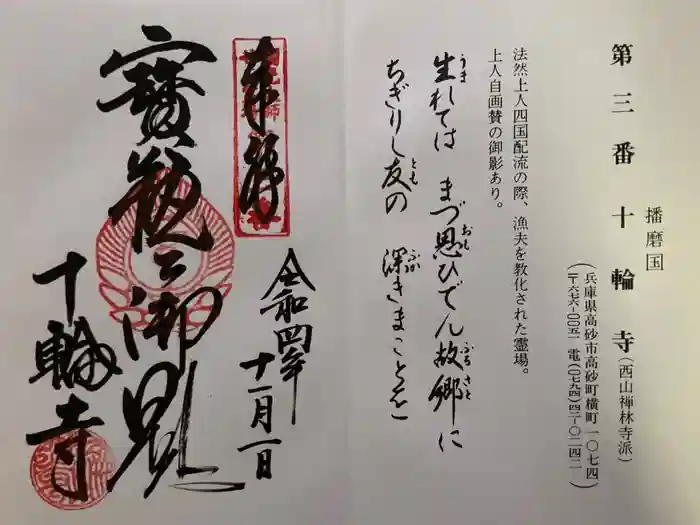 第三番 十輪寺(西山禅林寺派)
播磨国
(兵庫県高砂市高砂町横町一〇七四
〒六七六-〇〇五一 電(〇七九四)四二-〇二四二)
法然上人四国配流の際、漁夫を教化された霊場。
上人自画賛の御影あり。
生れては まづ思ひでん 故郷に
うま おも ふるさと
ちぎりし友の 深きまことを
とも ふか
奉拝
令和四年
十一月一日
寶瓶之御影
十輪寺